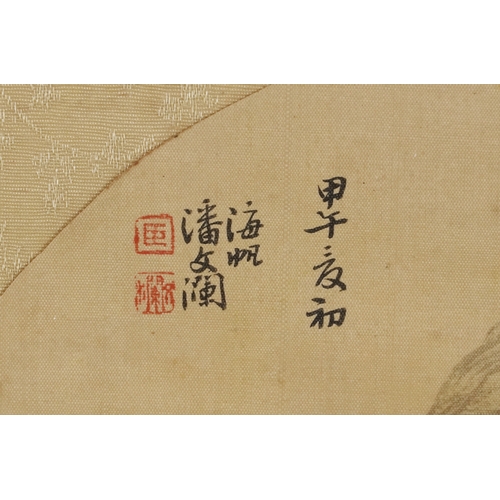 甲午夏初
海帆
潘文瀾